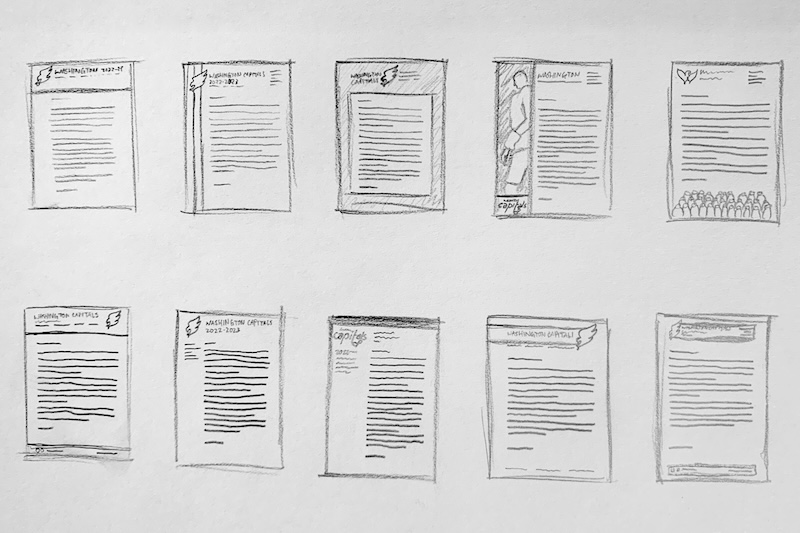 WASHINGTON 2022-23
WASHINGTON CAPITALS
2022-2023
WASHINGTON
CAPITALS
WASHINGTON
capitals
WASHINGTON CAPITALS
WASHINGTON CAPITALS
2022-2023
capitals
2022-
WASHINGTON CAPITALS